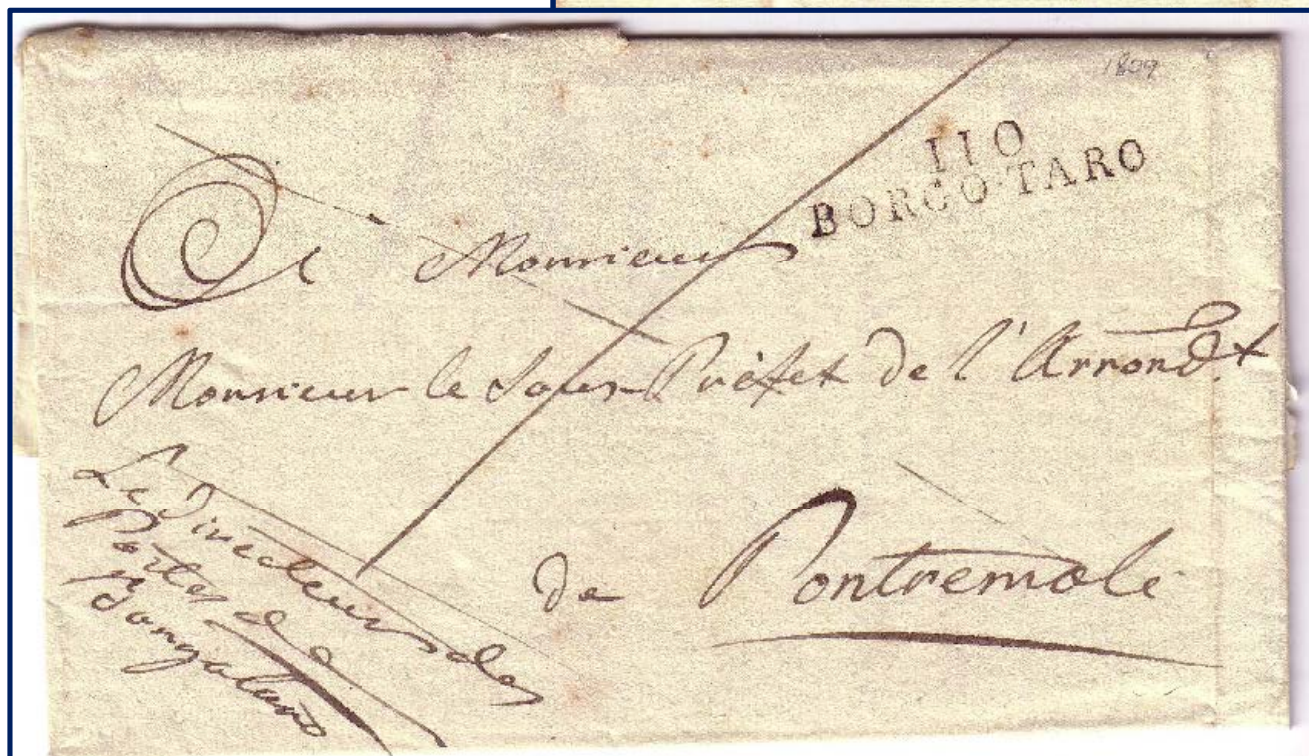 1809
110
BORGO-TARO
A Monsieur
Monsieur le Sous-Préfet de l'Arrond.t
de Pontremoli
Le Directeur des
Postes de
Borgotaro